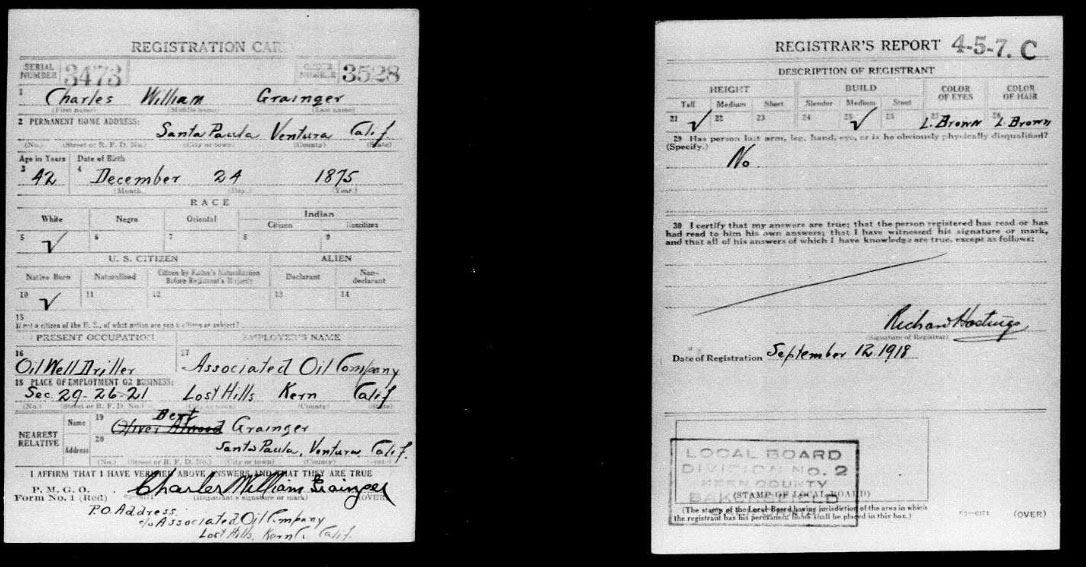 REGISTRATION CARD
SERIAL NUMBER 3473 ORDER NUMBER 3528
1 Charles William Grainger
(First name) (Middle name) (Last name)
2 PERMANENT HOME ADDRESS:
Santa Paula Ventura Calif
(No.) (Street or R. F. D. No.) (City or town) (County) (State)
Age in Years Date of Birth
3 42 4 December 24 1875
(Month.) (Day.) (Year.)
RACE
White Negro Oriental Indian
Citizen Noncitizen
5 √ 6 7 8 9
U. S. CITIZEN ALIEN
Native Born Naturalized Citizen by Father's Naturalization Before Registrant's Majority Declarant Non-declarant
10 √ 11 12 13 14
15
If not a citizen of the U. S., of what nation are you a citizen or subject?
PRESENT OCCUPATION EMPLOYER'S NAME
16 Oil Well Driller 17 Associated Oil Company
18 PLACE OF EMPLOYMENT OR BUSINESS:
Sec 29-26-21 Lost Hills Kern Calif
(No.) (Street or R. F. D. No.) (City or town) (County) (State)
NEAREST RELATIVE Name 19 Bert
Oliver Atwood Grainger
Address 20 Santa Paula, Ventura Calif.
(No.) (Street or R. F. D. No.) (City or town) (County) (State)
I AFFIRM THAT I HAVE VERIFIED ABOVE ANSWERS AND THAT THEY ARE TRUE
P. M. G. O.
Form No. 1 (Red) Charles William Grainger
(Registrant's signature or mark) (OVER)
P.O Address
c/o Associated Oil Company
Lost Hills, Kern C. Calif.
REGISTRAR'S REPORT 4-5-7. C
DESCRIPTION OF REGISTRANT
HEIGHT BUILD COLOR OF EYES COLOR OF HAIR
Tall Medium Short Slender Medium Stout
21 √ 22 23 24 25 √ 26 27 L. Brown 28 L. Brown
29 Has person lost arm, leg, hand, eye, or is he obviously physically disqualified?
(Specify.) No
30 I certify that my answers are true; that the person registered has read or has
had read to him his own answers; that I have witnessed his signature or mark,
and that all of his answers of which I have knowledge are true, except as follows:
Richard Hastings
(Signature of Registrar)
Date of Registration September 12, 1918
LOCAL BOARD
DIVISION No. 2
KERN COUNTY
BAKERSFIELD
(STAMP OF LOCAL BOARD)
(The stamp of the Local Board having jurisdiction of the area in which
the registrant has his permanent home shall be placed in this box.)
(OVER)